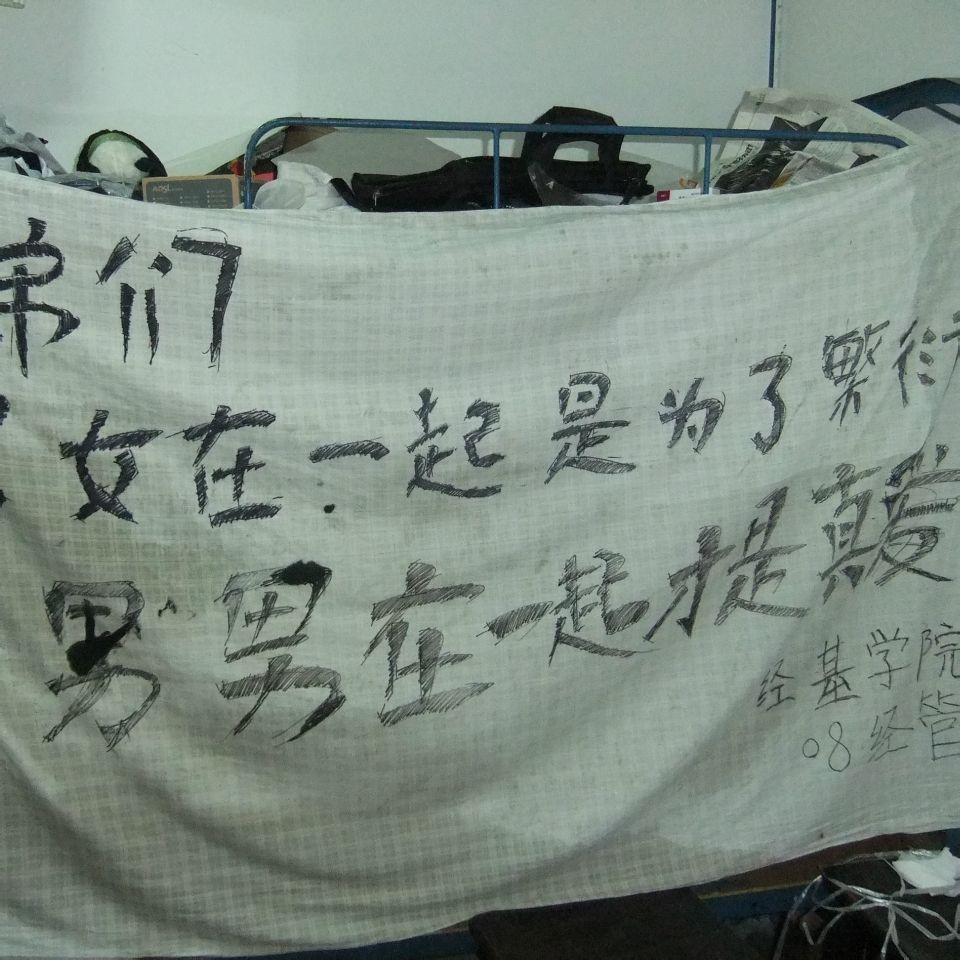 弟们
女在一起是为了繁衍
男男在一起才是真爱
经基学院
08经管